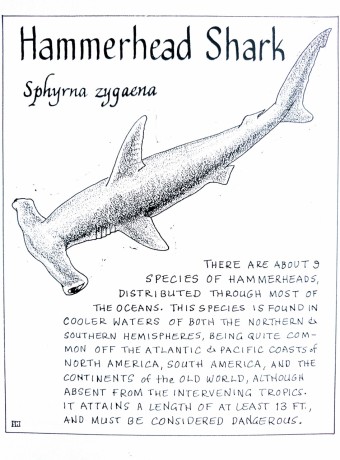 Hammerhead Shark
Sphyrna zygaena
THERE ARE ABOUT 9
SPECIES OF HAMMERHEADS,
DISTRIBUTED THROUGH MOST OF
THE OCEANS. THIS SPECIES IS FOUND IN
COOLER WATERS OF BOTH THE NORTHERN &
SOUTHERN HEMISPHERES, BEING QUITE COM-
MON OFF THE ATLANTIC & PACIFIC COASTS of
NORTH AMERICA, SOUTH AMERICA, AND THE
CONTINENTS of the OLD WORLD, ALTHOUGH
ABSENT FROM THE INTERVENING TROPICS.
IT ATTAINS A LENGTH OF AT LEAST 13 FT.,
AND MUST BE CONSIDERED DANGEROUS.